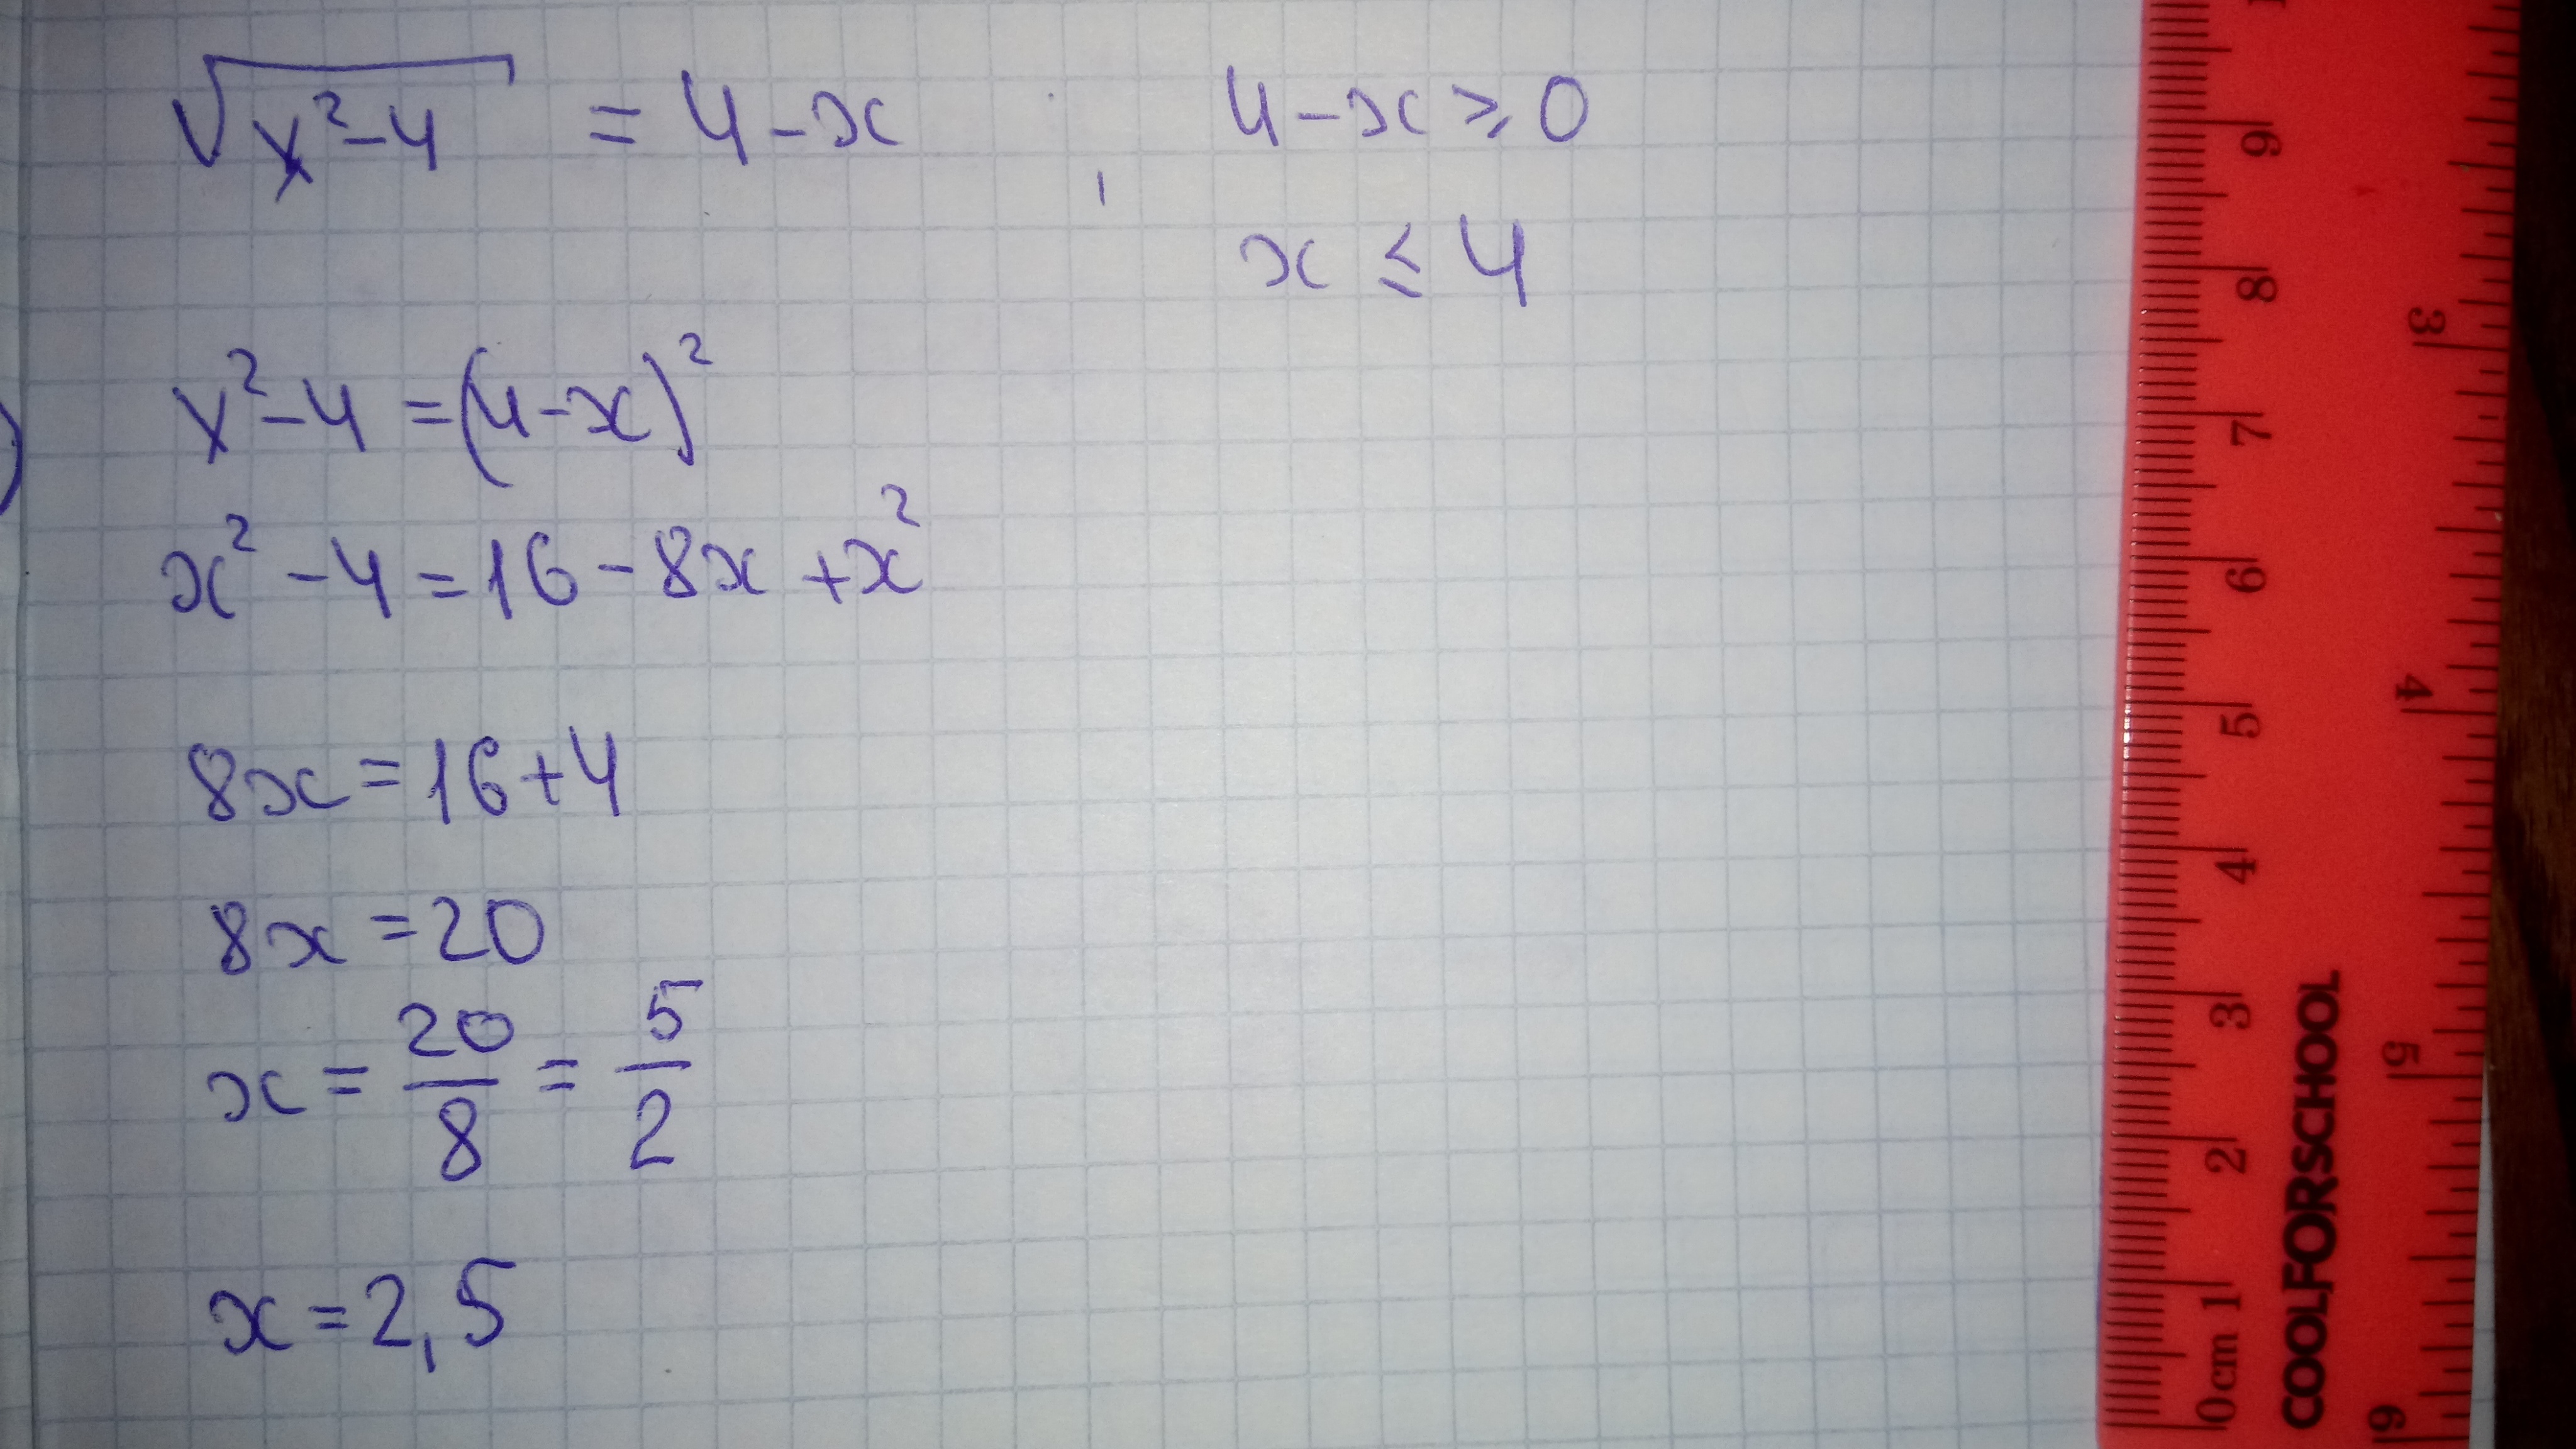 √x²-4 = 4-x , 4-x ≥ 0
x ≤ 4
x²-4 = (4-x)²
x² -4 = 16 - 8x + x²
8x = 16+4
8x = 20
x = 20/8 = 5/2
x = 2,5
0cm 1 2 3 4 5 6 7 8 9
COOLFORSCHOOL
3 4 5 6